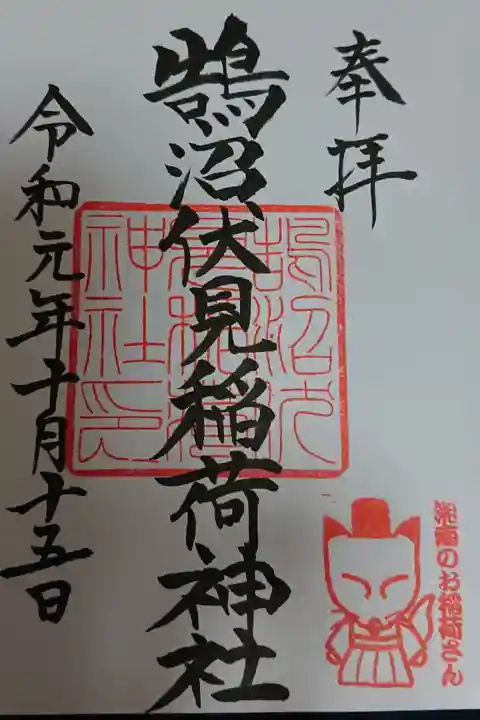 奉拝
鵠沼伏見稲荷神社
令和元年十月十五日
鵠沼伏見稲荷神社印
湘南のお稲荷さん